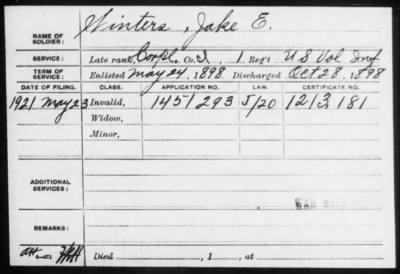 NAME OF SOLDIER: Winters, Jake E.
SERVICE: Late rank, Corpl, Co. I, 1 Reg't U S Vol Inf
TERM OF SERVICE: Enlisted May 24, 1898 Discharged Oct 28, 1898
DATE OF FILING. CLASS. APPLICATION NO. LAW. CERTIFICATE NO.
1921 May 23 Invalid, 1451293 J/20 1213181
Widow,
Minor,
ADDITIONAL SERVICES:
WAR
REMARKS:
Died , 1 , at